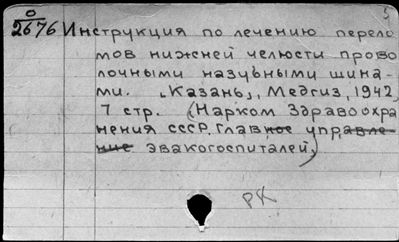 5
О
2676 Инструкция по лечению перело
мов нижней челюсти прово
лочными назубными шина-
ми. "Казань", Медгиз, 1942,
7 стр. (Нарком Здравоохра
нения СССР. Главное управле-
ние эвакогоспиталей.)
РК